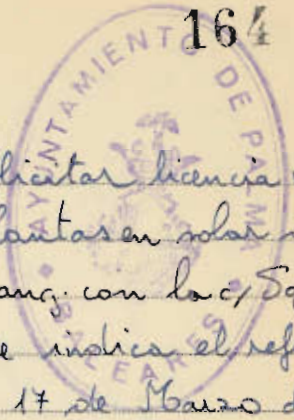 164
AYUNTAMIENTO DE PALMA
BALEARES
licitar licencia
lantas en solar
ang. con la c/ Sa
e indica el ref
17 de Marzo d